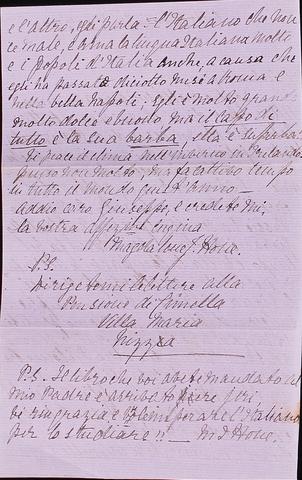 e l'altro, qui parla l'Italiano che non
è male, e ama la lingua Italiana molto
e i popoli d'Italia anche, a causa che
egli ha passato diciotto mesi a Roma e
nella bella Napoli; egli è molto grande
molto dolce e buono ma il capo di
tutto è la sua barba, ella è superba
piace il clima nell'inverno in
penso non molto, ma fa cattivo tempo
in tutto il mondo
Addio caro Giuseppe, e credete mi,
la vostra cugina
P.S.
Dirigete mi lettere alla
Pensione di
Villa Maria
Nizza
P.S. Il libro che voi avete mandato al
mio Padre è arrivato ieri
vi ringrazia e l'Italiano
per lo studiare!! M J Howe.